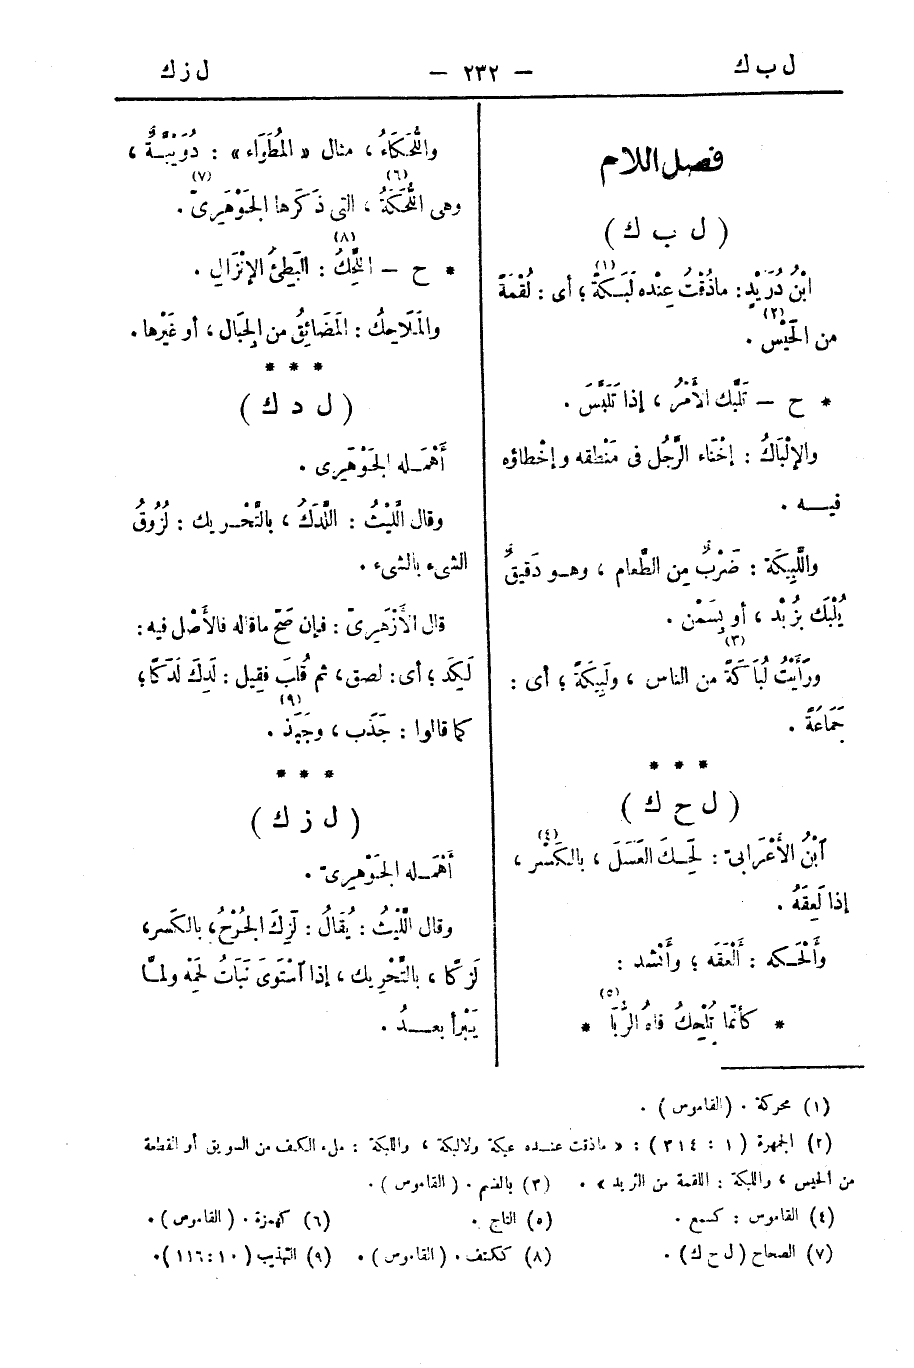 ل ب ك
— ٢٣٢ —
ل ز ك
فصل اللام
( ل ب ك )
ابْنُ دُرَيْدٍ : ماذُقْتُ عِنْده لَبَكَةً (١) ؛ أى : لُقْمَةً
من الحَيْس (٢) .
* ح — تَلَبَّك الأَمْرُ ، إذا تَلَبَّسَ .
والإلْبَاكُ : إخْنَاء الرَّجُل فى مَنْطقه وإخْطاؤه
فيــه .
واللَّبِيكَة : ضَرْبٌ مِن الطَّعام ، وهــو دَقيقٌ
يُلْبَك بزُبْد ، أو بِسَمْن .
ورَأَيْتُ لُبَاكَةً (٣) من الناس ، ولَبِيكَةً ؛ أى :
جَمَاعَةً .
* * *
( ل ح ك )
ٱبْنُ الأَعْرَابىّ : لَحِـكَ العَسَلَ ، بالكَسْر (٤) ،
إذا لَعِقَهُ .
وأَلْحَـكه : أَلْعَقَه ؛ وأَنْشد :
* كأنّما تُلْحِكُ فاهُ الرُّبَّا (٥) *
واللُّحَكَاءُ ، مثال « المُطَوَاء » : دُوَيْبَّةٌ ،
وهى اللُّحَكَةُ (٦) ، التى ذَكَرها الجَوْهَرِىّ (٧) .
* ح — اللَّحِكُ (٨) : البَطِئُ الإنْزَالِ .
والمَلَاحِكُ : المَضَائِقُ من الجِبَال ، أو غَيْرِها .
* * *
( ل د ك )
أَهْمَـله الجَوْهَرِى .
وقال اللَّيْثُ : اللَّدَكُ ، بالتَّحْـريك : لُزُوقُ
الشىء بالشىء .
قال الأَزْهَرِىّ : فإن صَحّ ماقاله فالأَصْل فيه :
لَكِدَ ؛ أى : لصق ، ثم قُلِبَ فقِيل : لَدِكَ لَدَكًا ؛
كما قالوا : جَذَب ، وجَبَذ (٩) .
* * *
( ل ز ك )
أَهْمَـله الجَوْهَرِىّ .
وقال اللَّيْثُ : يُقَالُ : لَزِكَ الجُرْحُ ، بالكَسر ،
لَزَكًا ، بالتَّحْرِيك ، إذا ٱسْتَوَى نَبَاتُ لَحْمِه ولمــا
يَبْرأ بعــدُ .
(١) محركة . (القاموس) .
(٢) الجمهرة ( ١ : ٣١٤ ) : « ماذقت عنــده عبكة ولالبكة ، واللبكة : ملء الكف من السويق أو القطعة
من الحيس ، واللبكة : اللقمة من الثريد » . (٣) بالضم . ( القاموس ) .
(٤) القاموس : كسمع . (٥) التاج . (٦) كهمزة . ( القاموس ) .
(٧) الصحاح ( ل ح ك ) . (٨) ككتف . ( القاموس ) . (٩) التهذيب ( ١٠ : ١١٦ ) .